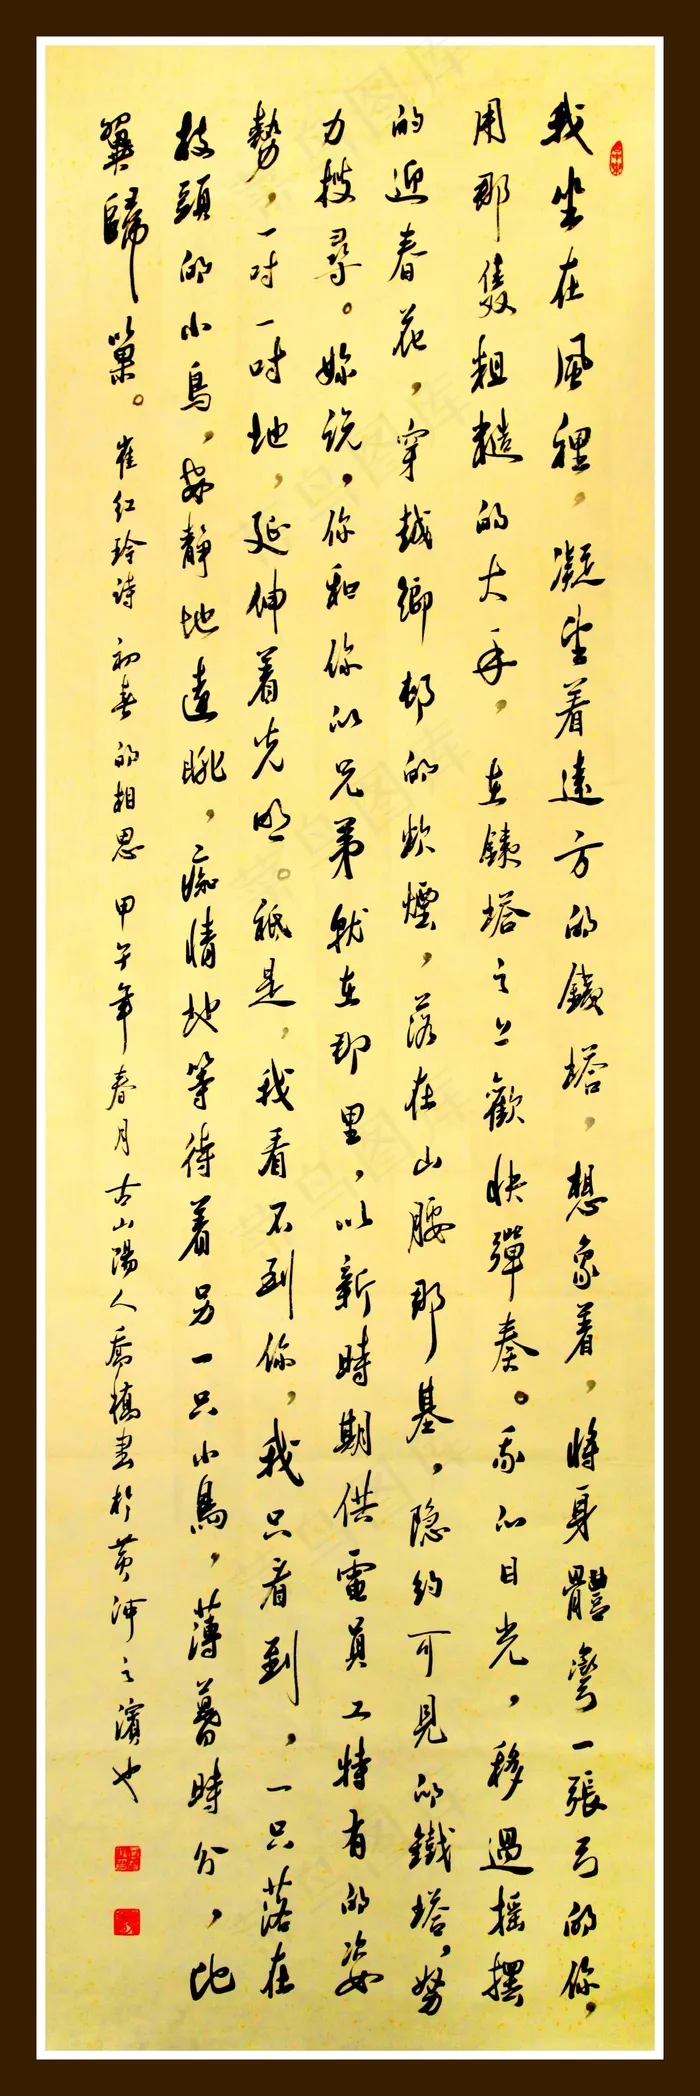 我坐在風裡，凝望着遠方的鐵塔，想象着，將身體彎一張弓的你，
用那隻粗糙的大手，在鐵塔之上歡快彈奏。我的目光，移過搖擺
的迎春花，穿越鄉邨的炊煙，落在山腰那基，隐约可見的鐵塔，努
力搜尋。妳説，你和你的兄弟就在那里，以新時期供電員工特有的姿
勢，一吋一吋地，延伸着光明。祇是，我看不到你，我只看到，一只落在
枝頭的小鳥，安靜地遠眺，痴情地等待着另一只小鳥，薄暮時分，比
翼歸巢。崔红玲詩 初春的相思 甲午年春月古山陽人喬楨書於黄河之濱也
菜鸟图库